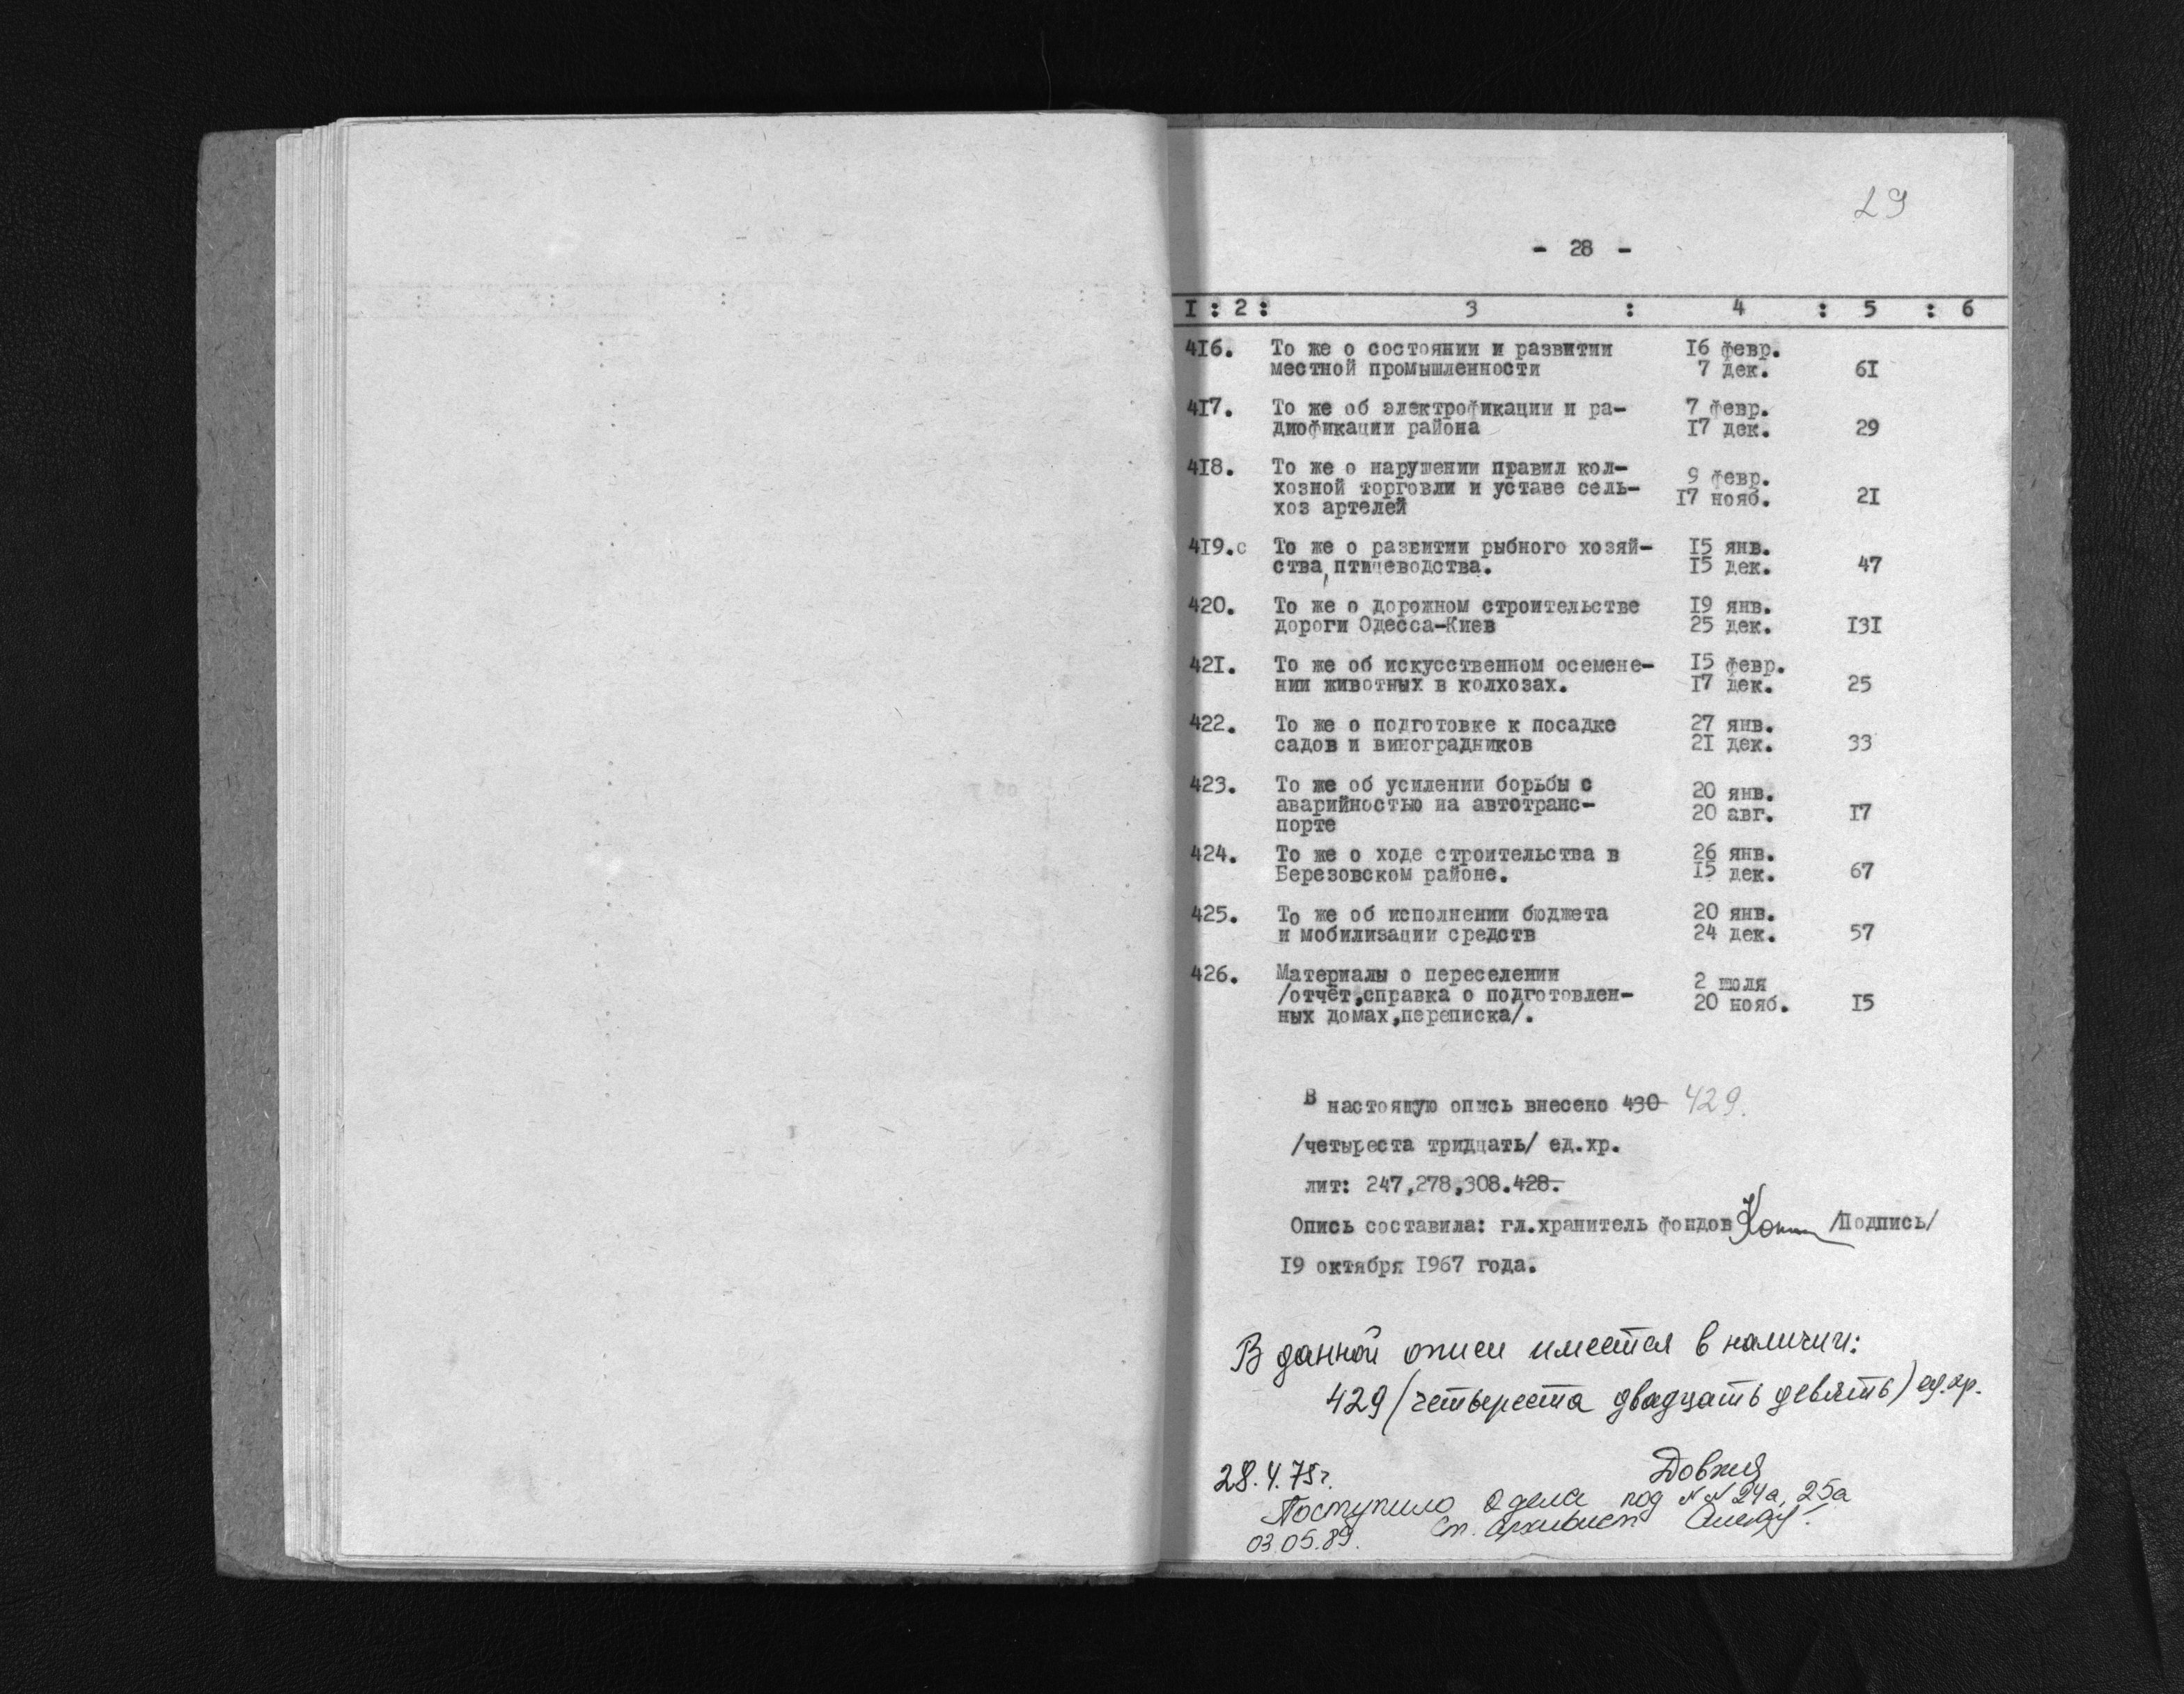 29
- 28 -
I : 2 : 3 : 4 : 5 : 6
416. То же о состоянии и развитии 16 февр.
местной промышленности 7 дек. 61
417. То же об электрофикации и ра- 7 февр.
диофикации района 17 дек. 29
418. То же о нарушении правил кол-
хозной торговли и уставе сель- 9 февр.
хоз артелей 17 нояб. 21
419.с То же о развитии рыбного хозяй- 15 янв.
ства,птицеводства. 15 дек. 47
420. То же о дорожном строительстве 19 янв.
дороги Одесса-Киев 25 дек. 131
421. То же об искусственном осемене- 15 февр.
нии животных в колхозах. 17 дек. 25
422. То же о подготовке к посадке 27 янв.
садов и виноградников 21 дек. 33
423. То же об усилении борьбы с
аварийностью на автотранс- 20 янв.
порте 20 авг. 17
424. То же о ходе строительства в 26 янв.
Березовском районе. 15 дек. 67
425. То же об исполнении бюджета 20 янв.
и мобилизации средств 24 дек. 57
426. Материалы о переселении
/отчёт,справка о подготовлен- 2 июля
ных домах,переписка/. 20 нояб. 15
В настоящую опись внесено 430 429.
/четыреста тридцать/ ед.хр.
лит: 247,278,308.428.
Опись составила: гл.хранитель фондов /Подпись/
19 октября 1967 года.
В данной описи имеется в наличии:
429 (четыреста двадцать девять) ед.хр.
28.4.75г.
Поступило 2 дела под №№ 24а, 25а
03.05.89. Ст. архивист